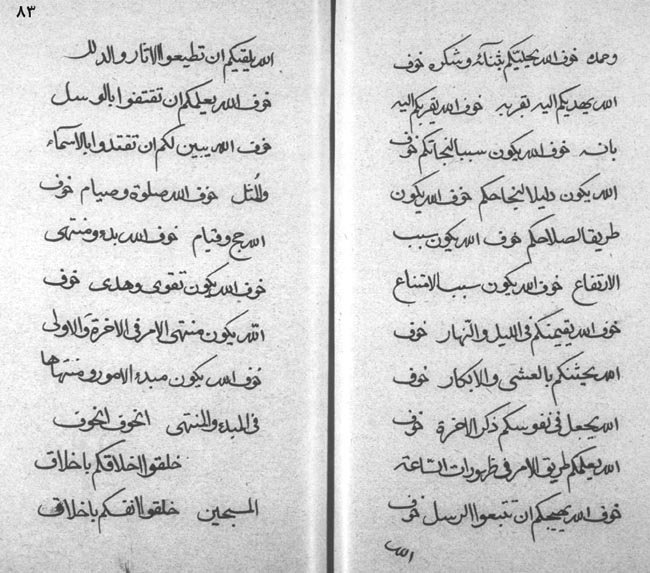 وحمده خوف الله يحليكم بثنآئه وشكره خوف
الله يهديكم اليه تقربه خوف الله يقربكم اليه
بانه خوف الله يكون سببا لنجاتكم خوف
الله يكون دليلا لنجاحكم خوف الله يكون
طريقا لصلاحكم خوف الله يكون سبب
الارتفاع خوف الله يكون سببا لامتناع
خوف الله يقيمنكم فى الليل والنهار خوف
الله يحثنكم بالعشى والابكار خوف
الله يجعل فى نفوسكم ذكر الاخرة خوف
الله يعلمكم طريق الامر فى ظهورات الساعة
خوف الله يهيجكم ان تتبعوا الرسل خوف
الله
٨٣
الله يقيكم ان تطيعوا الاثار والدلل
خوف الله يعلمكم ان تقتفوا بالوسل
خوف الله يبين لكم ان تقتدوا بالاسماء
والمثل خوف الله صلوة وصيام خوف
الله حج وقيام خوف الله بدء ومنتهى
خوف الله يكون تقوى وهدى خوف
الله يكون منتهى الامر فى الاخرة والاولى
خوف الله يكون مبدء الامور ومنتهاها
فى المبدء والمنتهى الخوف الخوف
خلقوا اخلاقكم باخلاق
المسبحين خلقوا انفسكم باخلاق